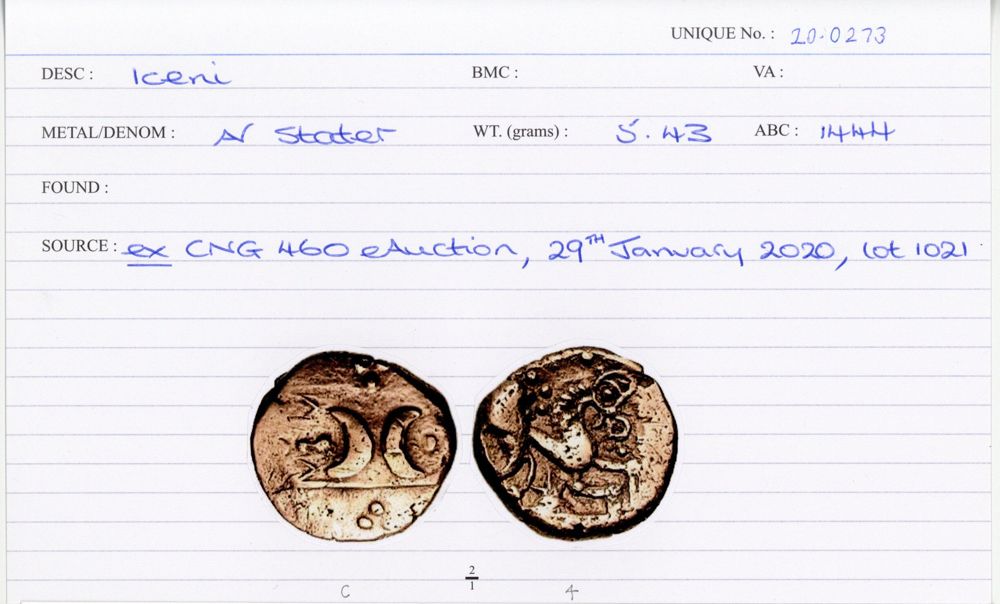 UNIQUE No. : 20.0273
DESC : Iceni BMC : VA :
METAL/DENOM : AV Stater WT. (grams) : 5.43 ABC : 1444
FOUND :
SOURCE : ex CNG 460 eAuction, 29TH January 2020, lot 1021
2
1
C 4